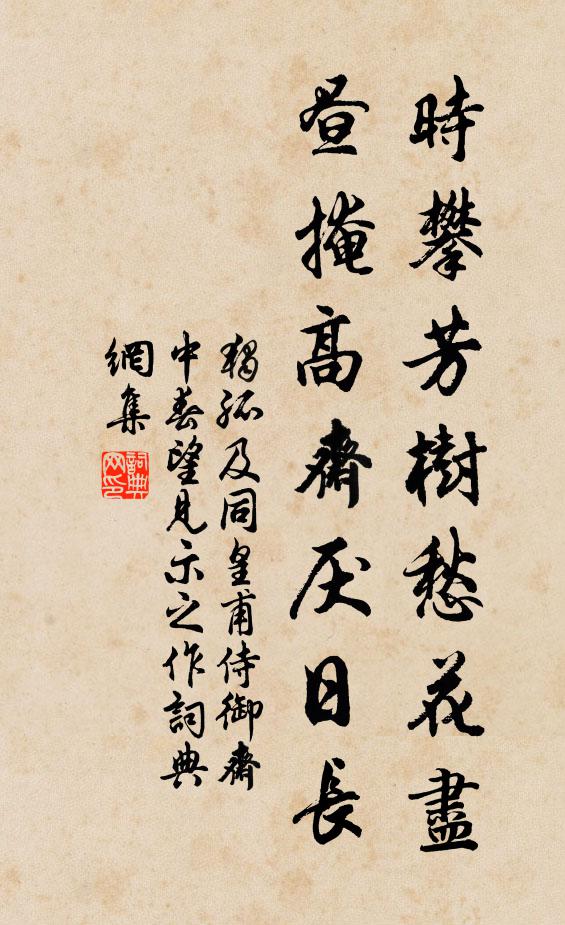 時攀芳樹愁花盡
晝掩高齋厭日長
獨孤及同皇甫侍御齋
中春望見示之作詞典
網集
詞典
网印